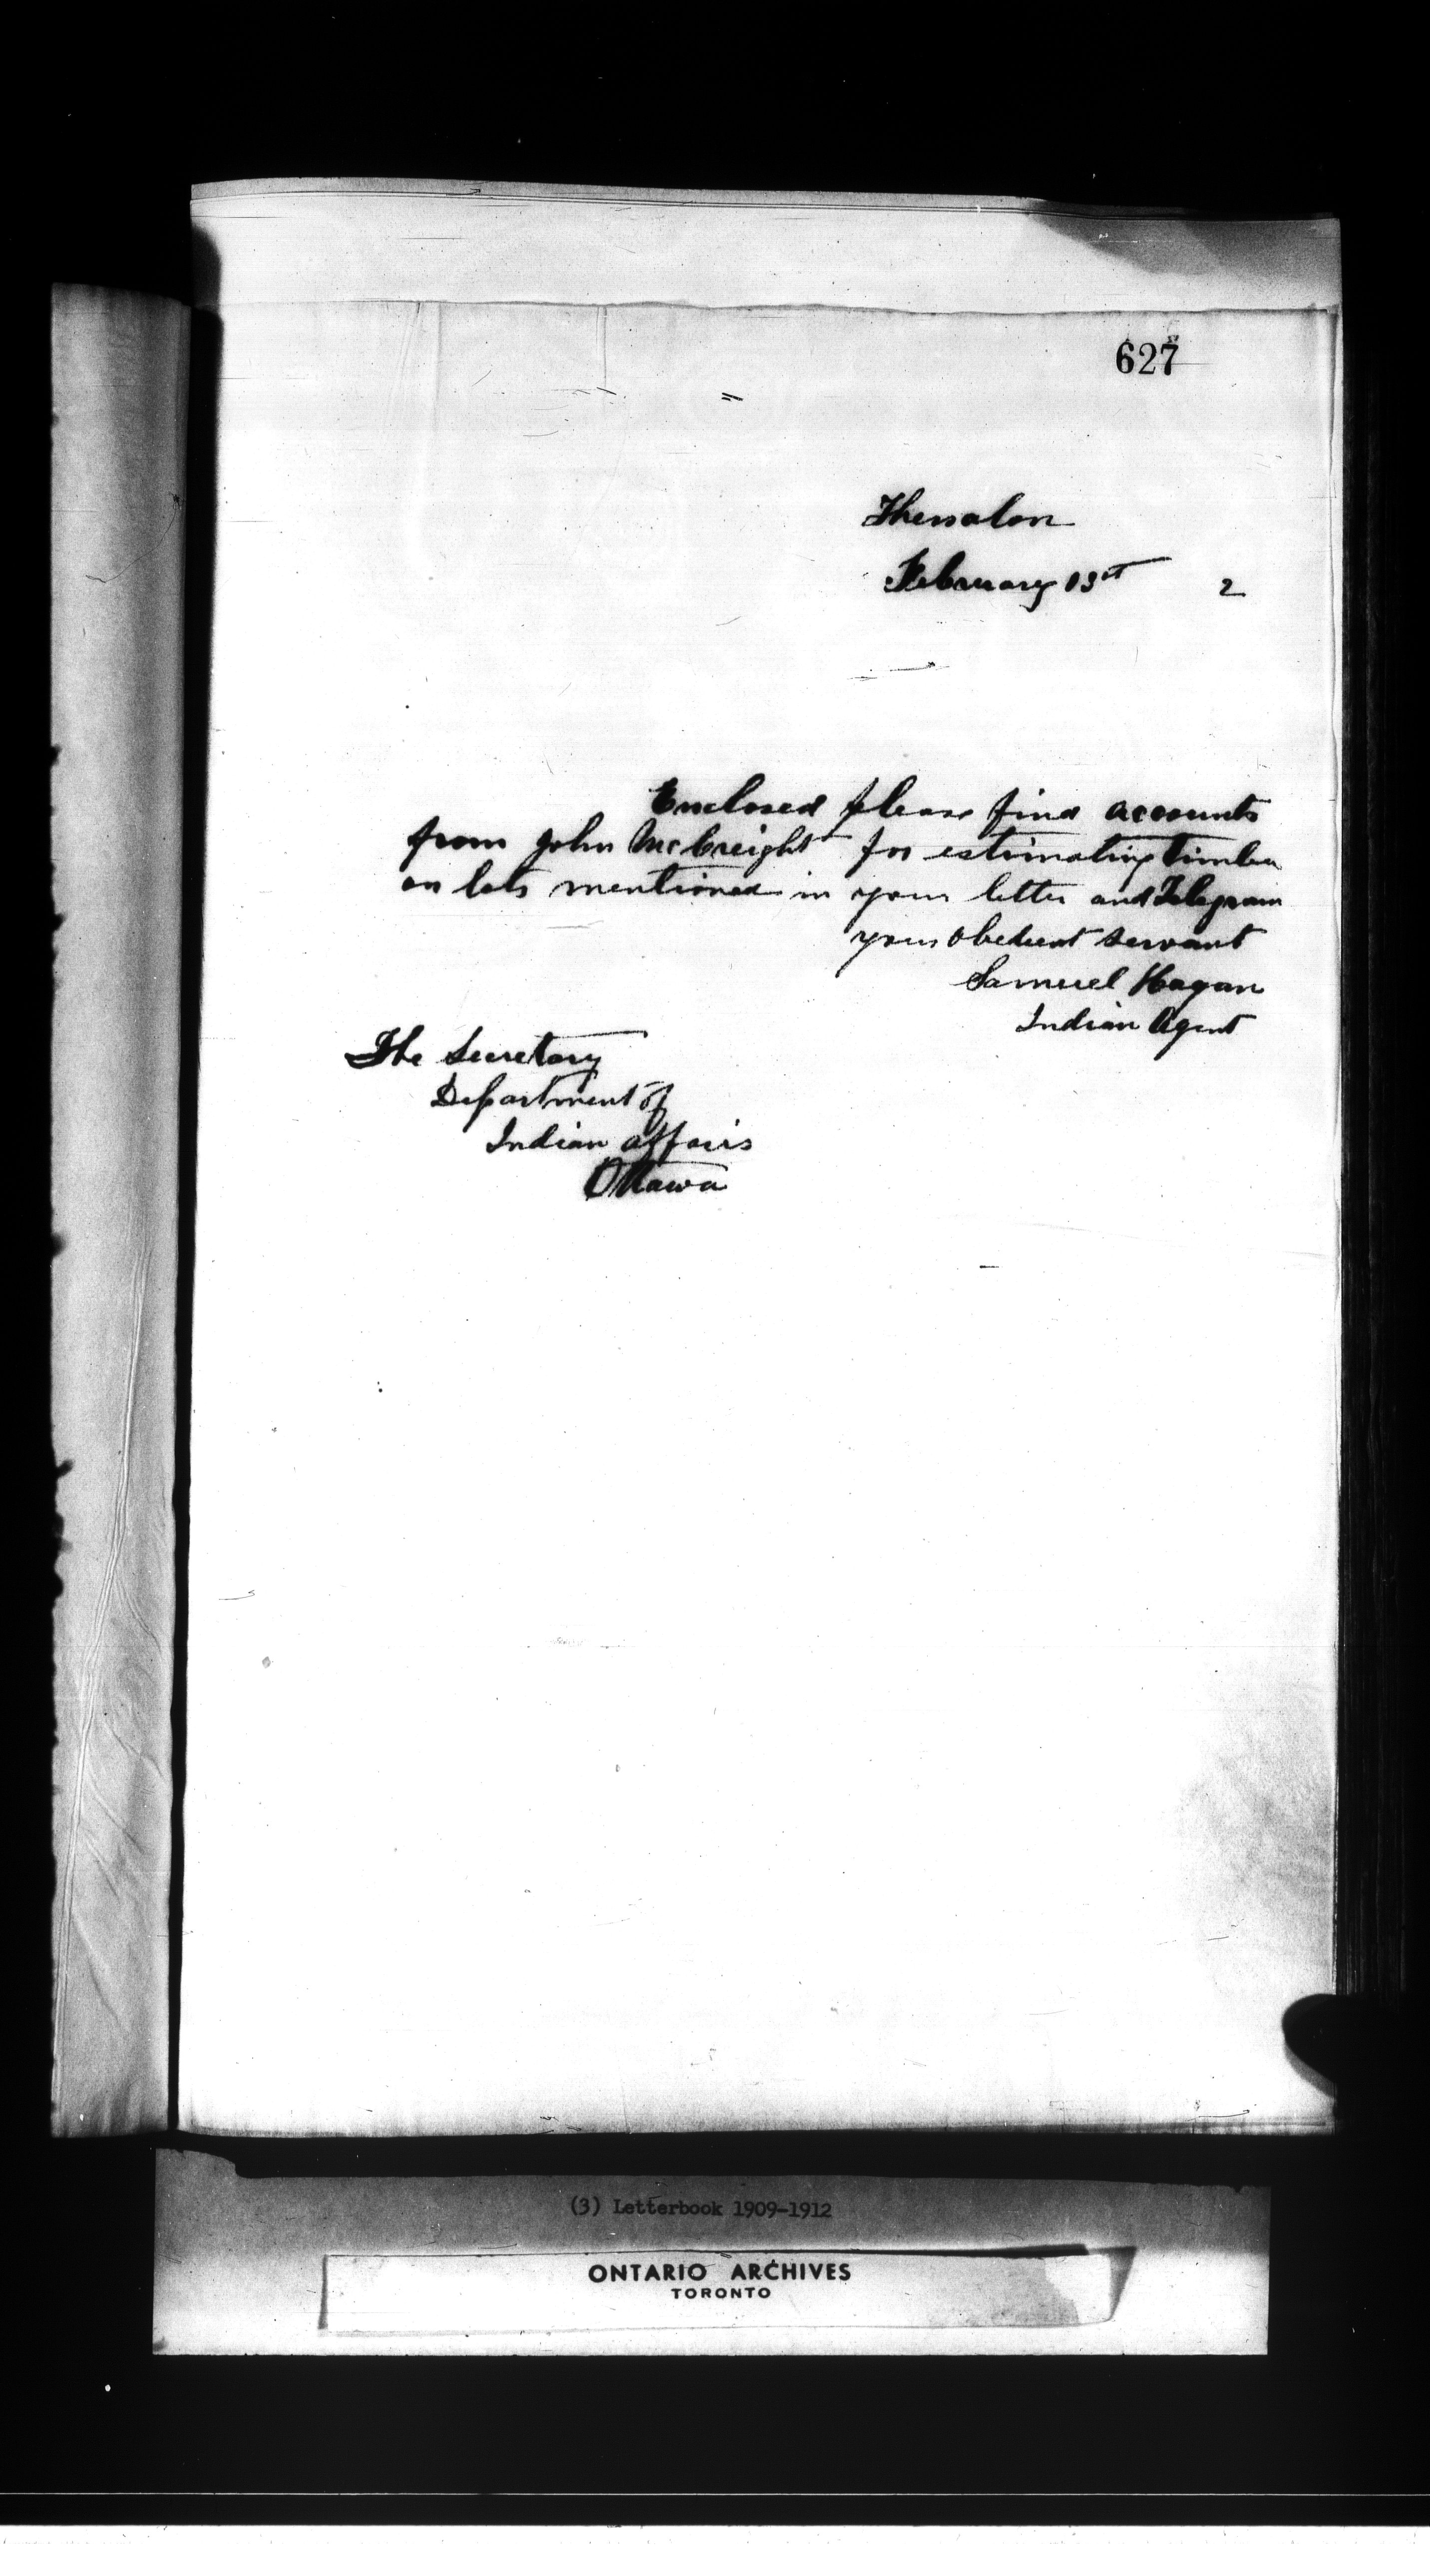 627
Thessalon
February 13st 2
Enclosed please find accounts
from John McCreight for estimating timber
on lots mentioned in your letter and Telegram
your Obedient servant
Samuel Hagan
Indian Agent
The Secretary
Department of
Indian affairs
Ottawa
(3) Letterbook 1909-1912
ONTARIO ARCHIVES
TORONTO